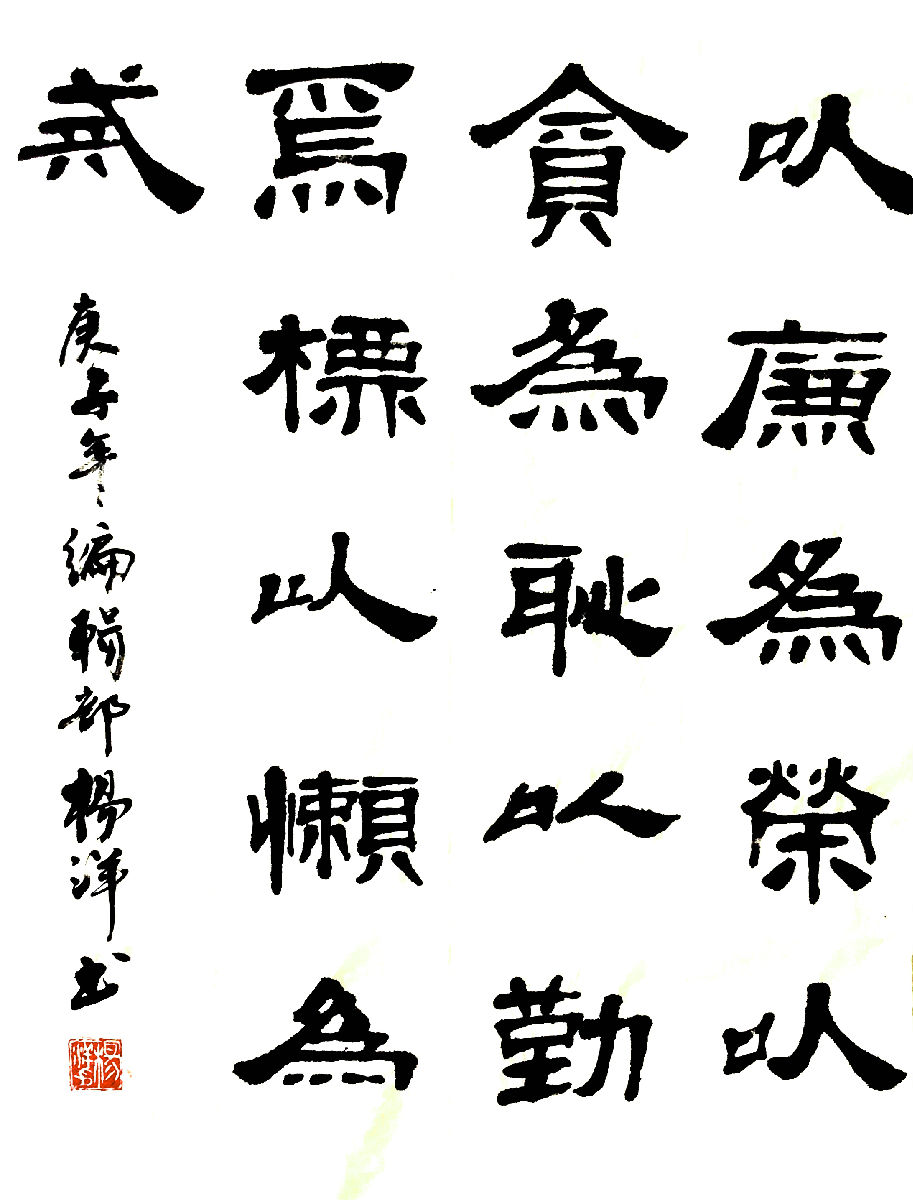 以廉為榮以
貪為恥以勤
爲標以懶為
戒
庚子年編輯部楊洋書
楊洋